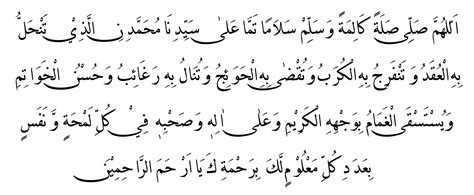 اَللّٰهُمَّ صَلِّى صَلَةً كَالِمَةً وَسَلِّمْ سَلَامًا تَمَّا عَلىٰ سَيِّدِنَا مُحَمَّدِنِ الَّذِيْ تَنْحَلُّ
بِهِ الْعُقَدُ وَ تَنْفَرِجُ بِهِ الْكُرَبُ وَتُقْضٰى بِهِ الْحَوَئِجُ وَتُنَالُ بِهِ رَغَائِبُ وَحُسْنُ الْخَوَاتِمِ
وَيُسْتَسْقَى الْغَمَامُ بِوَجْهِهِ الْكَرِيْمِ وَعَلىٰ اٰلِهِ وَصَحْبِهِ فِيْ كُلِّ لَمْحَةٍ وَ نَفَسٍ
بِعَدَدِ كُلِّ مَعْلُوْمٍ لَكَ بِرَحْمَةِكَ يَا اَرْحَمَ الرَّاحِمِيْنَ